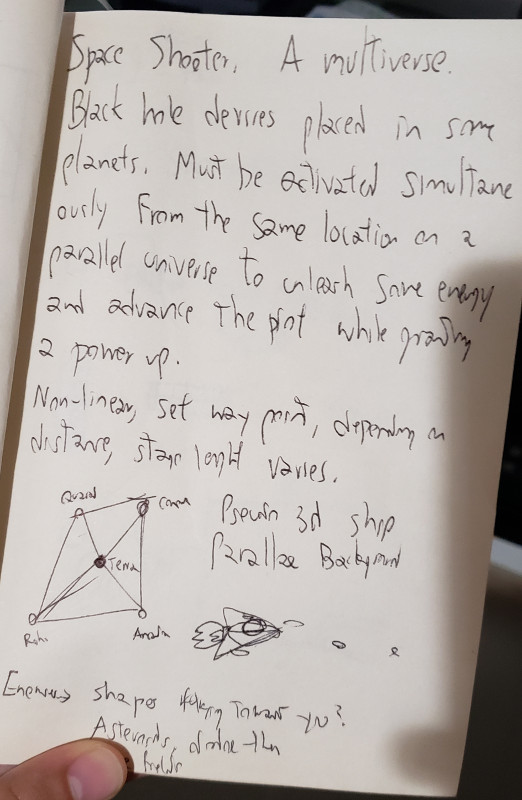 Space Shooter. A multiverse.
Black hole devices placed in some
planets. Must be activated simultane
ously from the same location on a
parallel universe to unleash some energy
and advance the plot while granting
a power up.
Non-linear, set way point, depending on
distance, stage lenght varies.
Pseudo 3d ship
Parallax Background
Terra
Enemies shapes flying toward you?
Asteroids,
fields